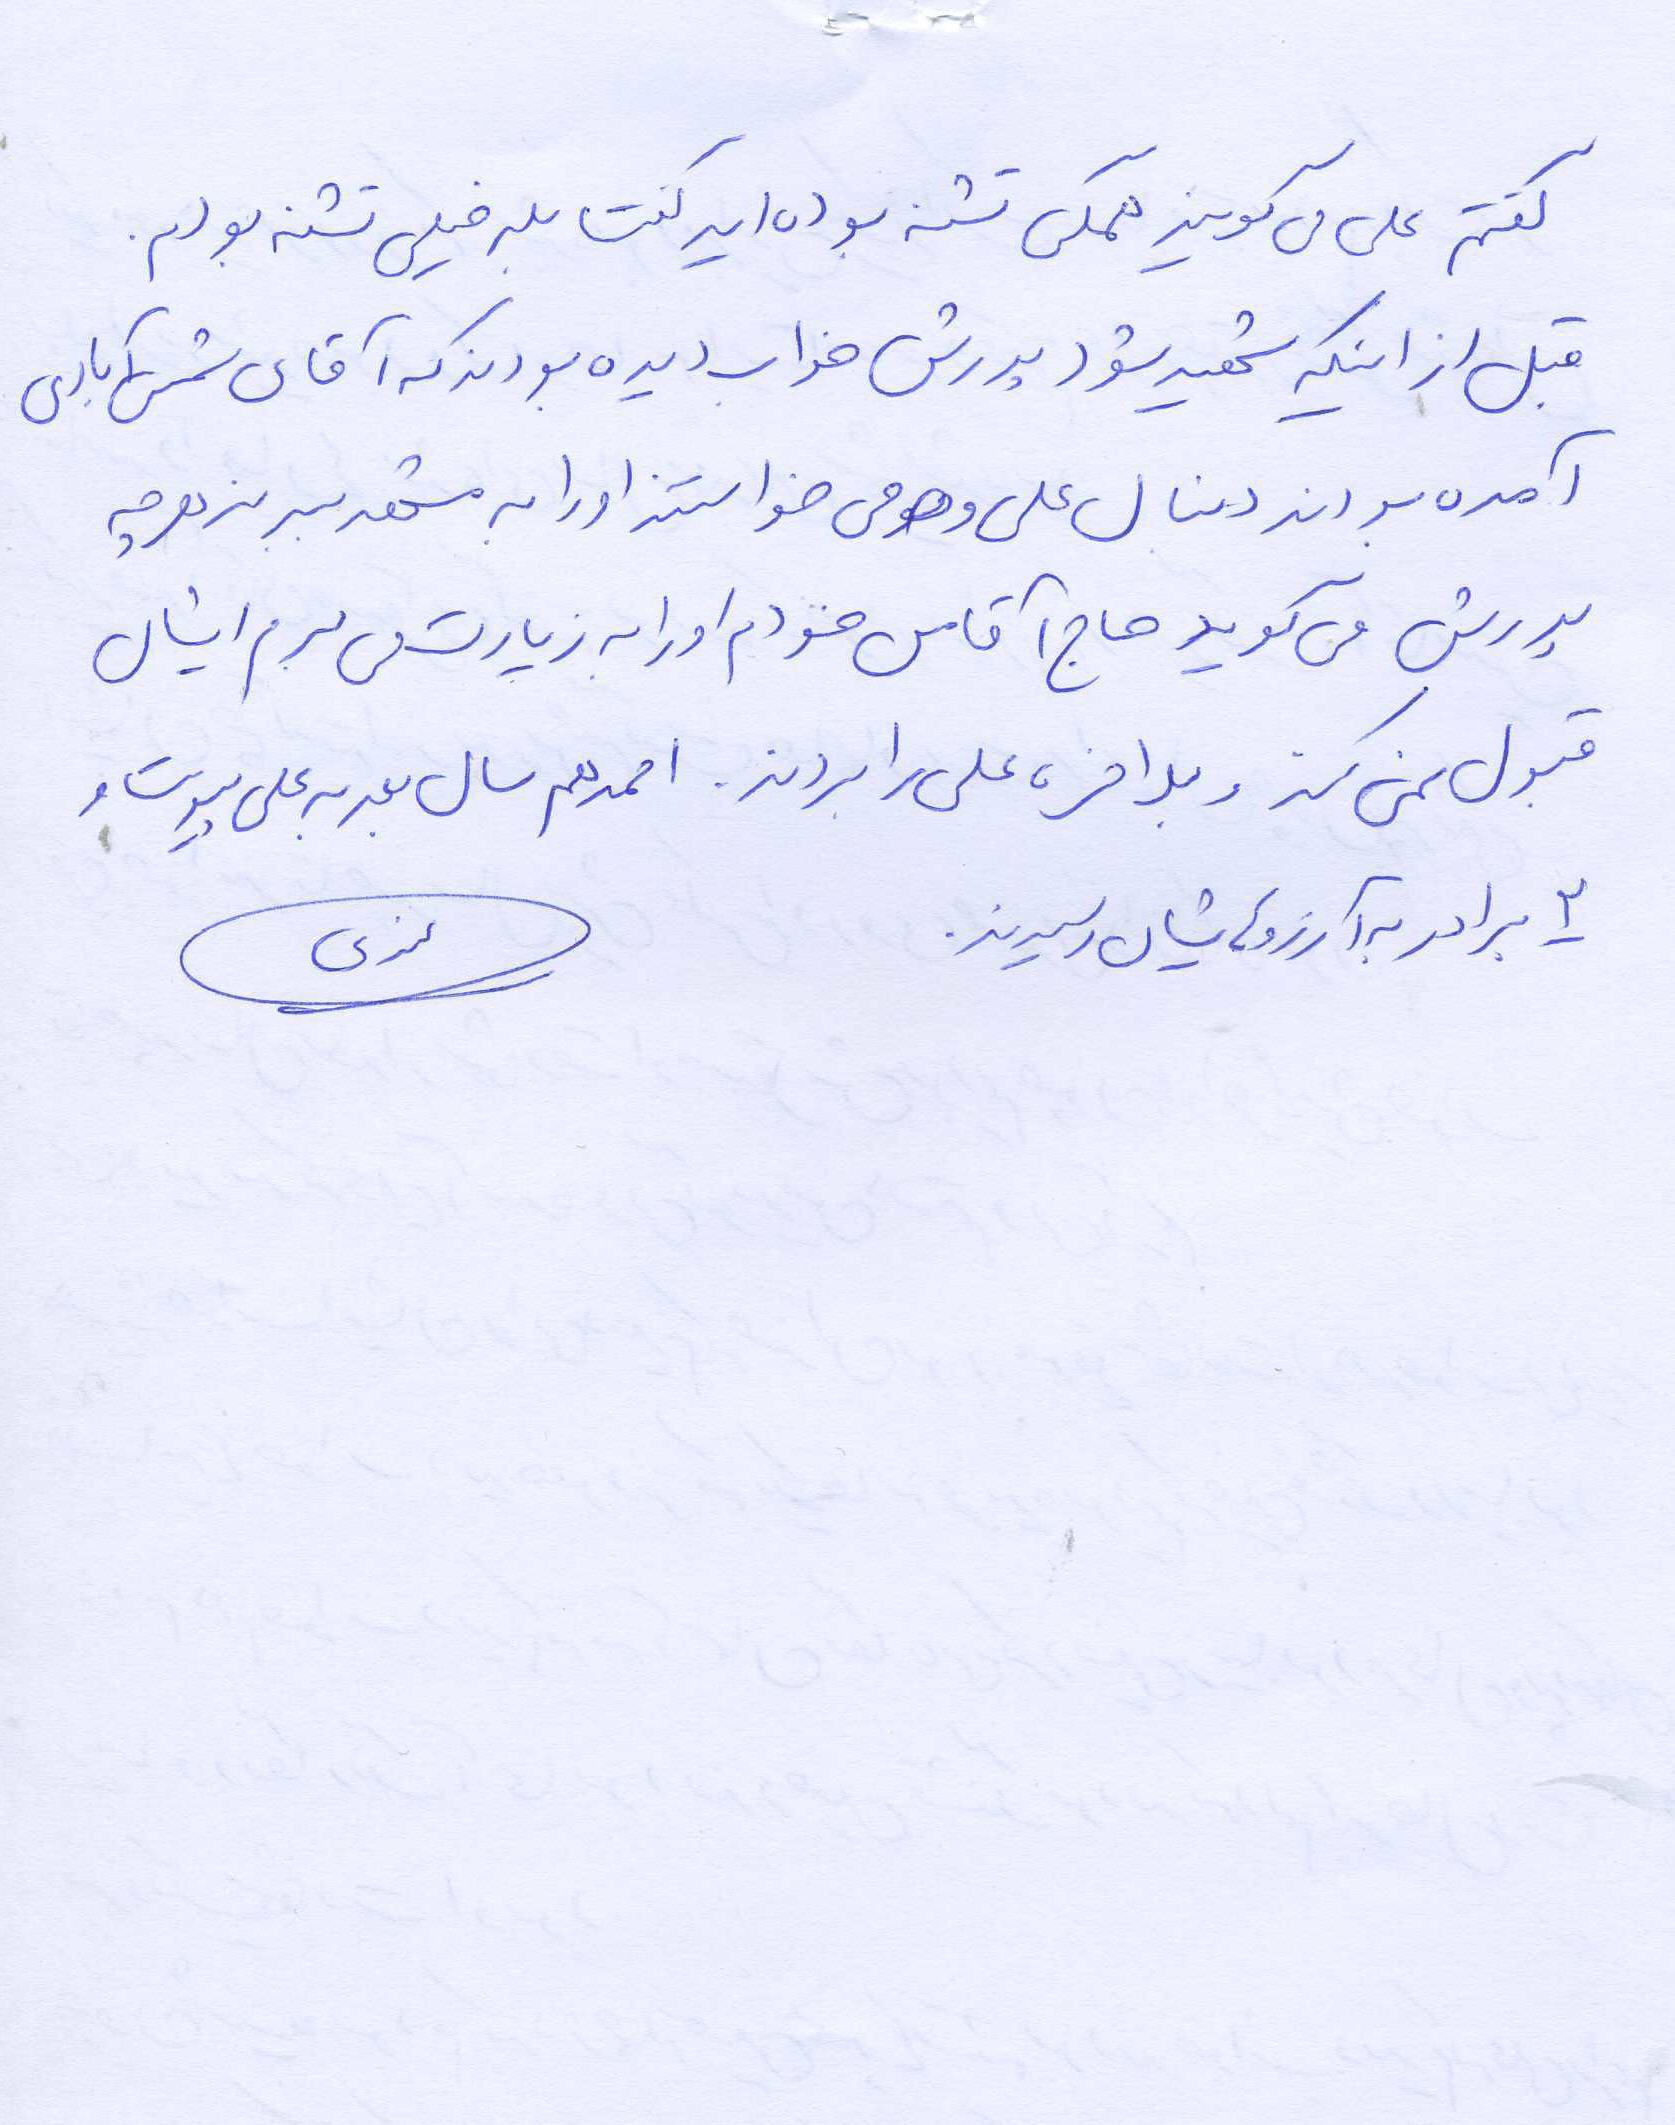 گفتم علی می گویند همگی تشنه بوده اید گفت بله خیلی تشنه بودم.
قبل از اینکه شهید شود پدرش خواب دیده بودند که آقای شمس آبادی
آمده بودند دنبال علی و می خواستند او را به مشهد ببرند هرچه
پدرش می گوید حاج آقا من خودم او را به زیارت می برم ایشان
قبول نمی کند و بلاخره علی را بردند. احمد هم سال بعد به علی پیوست و
۲ برادر به آرزوهایشان رسیدند.